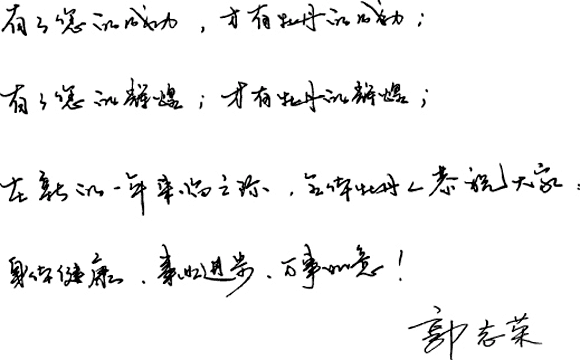 有了您的成功，才有牡丹的成功；
有了您的辉煌；才有牡丹的辉煌；
在新的一年来临之际，全体牡丹人恭祝大家：
身体健康、事业进步、万事如意！
郭志荣